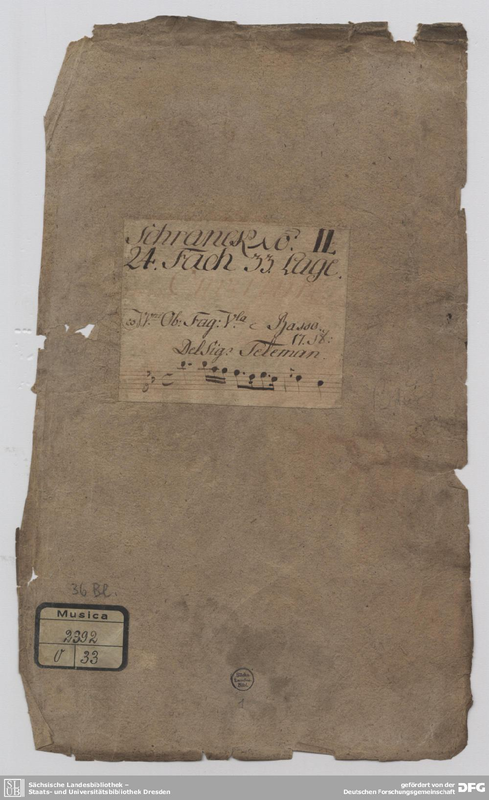 Schranck No: II.
24. Fach 33 Lage.
VV.ni Ob: Fag: V.la e Basso
No. 38:
Del Sig: Teleman.
36 Bl.
Musica
2392
V 33
1
SLUB
Sächsische Landesbibliothek –
Staats- und Universitätsbibliothek Dresden
gefördert von der
Deutschen Forschungsgemeinschaft
DFG